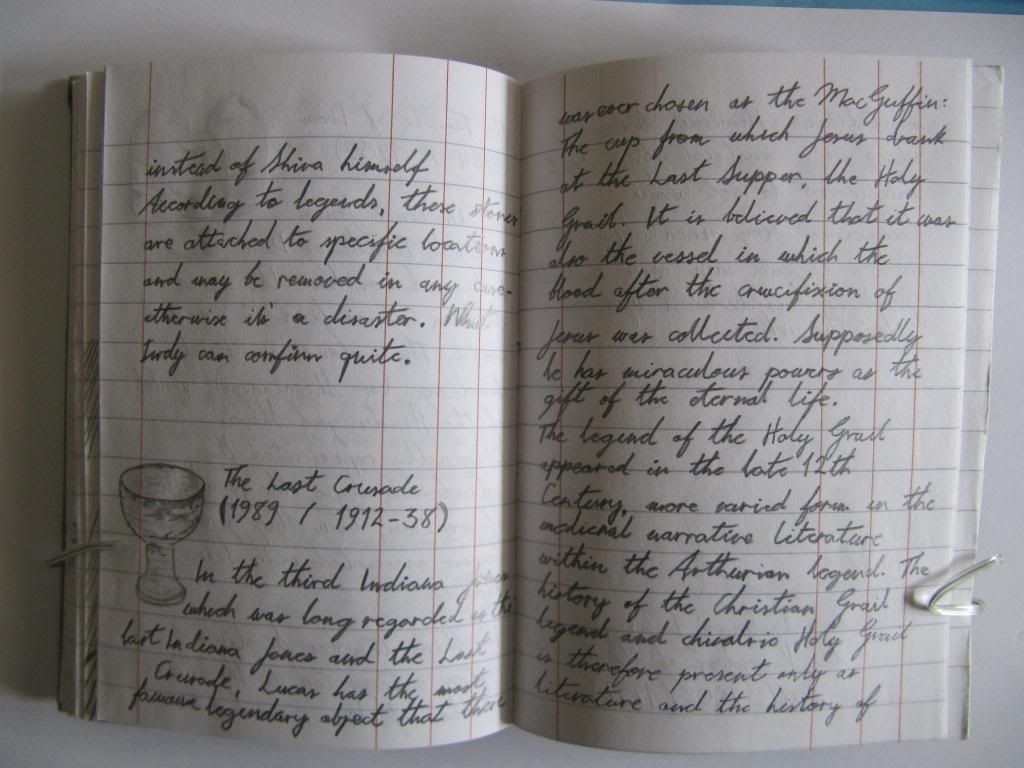 instead of Shiva himself
According to legends, these stones
are attached to specific locations
and may be removed in any case -
otherwise it's a disaster. What
Indy can confirm quite.
The Last Crusade
(1989 / 1912-38)
In the third Indiana Jones
which was long regarded as the
last Indiana Jones and the Last
Crusade, Lucas has the most
legendary object that there
was ever chosen as the MacGuffin:
the cup from which Jesus drank
at the Last Supper, the Holy
Grail. It is believed that it was
also the vessel in which the
blood after the crucifixion of
Jesus was collected. Supposedly
he has miraculous powers as the
gift of the eternal life.
The legend of the Holy Grail
appeared in the late 12th
Century, more varied form in the
medieval narrative literature
within the Arthurian legend. The
history of the Christian Grail
legend and chivalric Holy Grail
is therefore present only as
literature and the history of